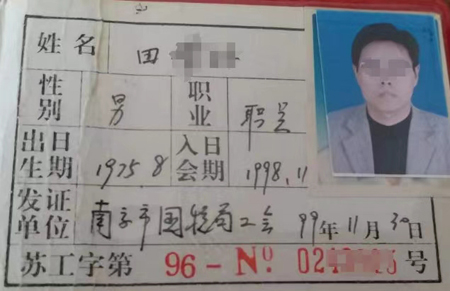 姓名 田
性别 男 职业 职员
出生日期 1975.8 入会日期 1998.11
发证单位 南京市国税局工会 99年11月30日
苏工字第 96-Nº 024 5号